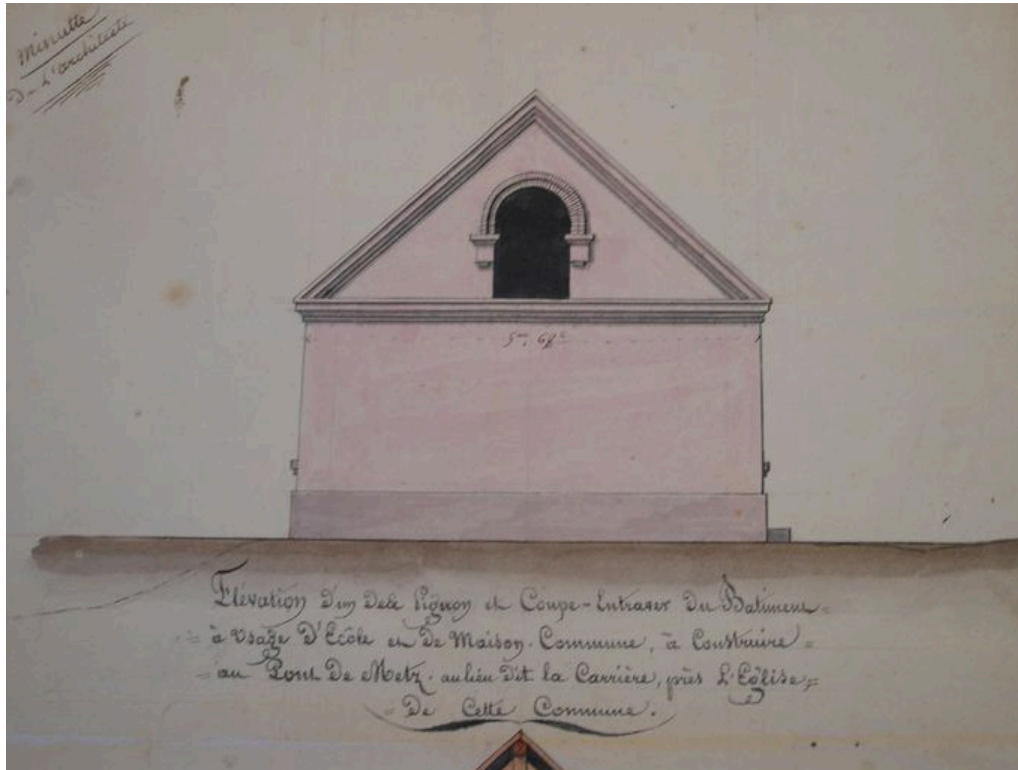 Minutte
De L'architecte
5m, 68c
Elévation D'un Des Pignon et Coupe-Entraver Du Batiment=
à Usage D'Ecôle et De Maison-Commune, à Construire=
=au Pont De Metz. au lieu Dit la Carrière, près L'Eglise=
=De Cette Commune.